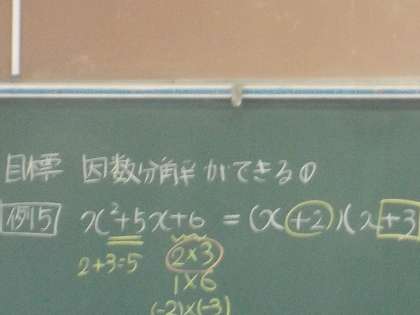 目標 因数分解ができる①
例5 x²+5x+6 = (x+2)(x+3
2+3=5 2×3
1×6
(-2)×(-3)